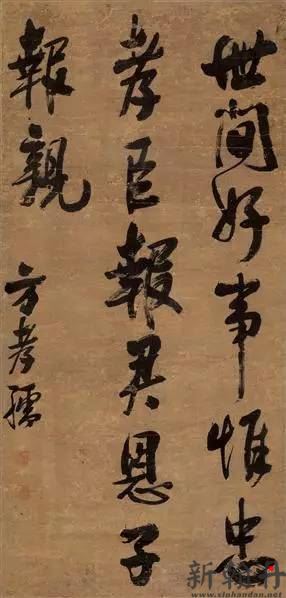 世间好事惟忠
孝臣報君恩子
報親
方孝孺
新邯郸
www.xinhandan.net